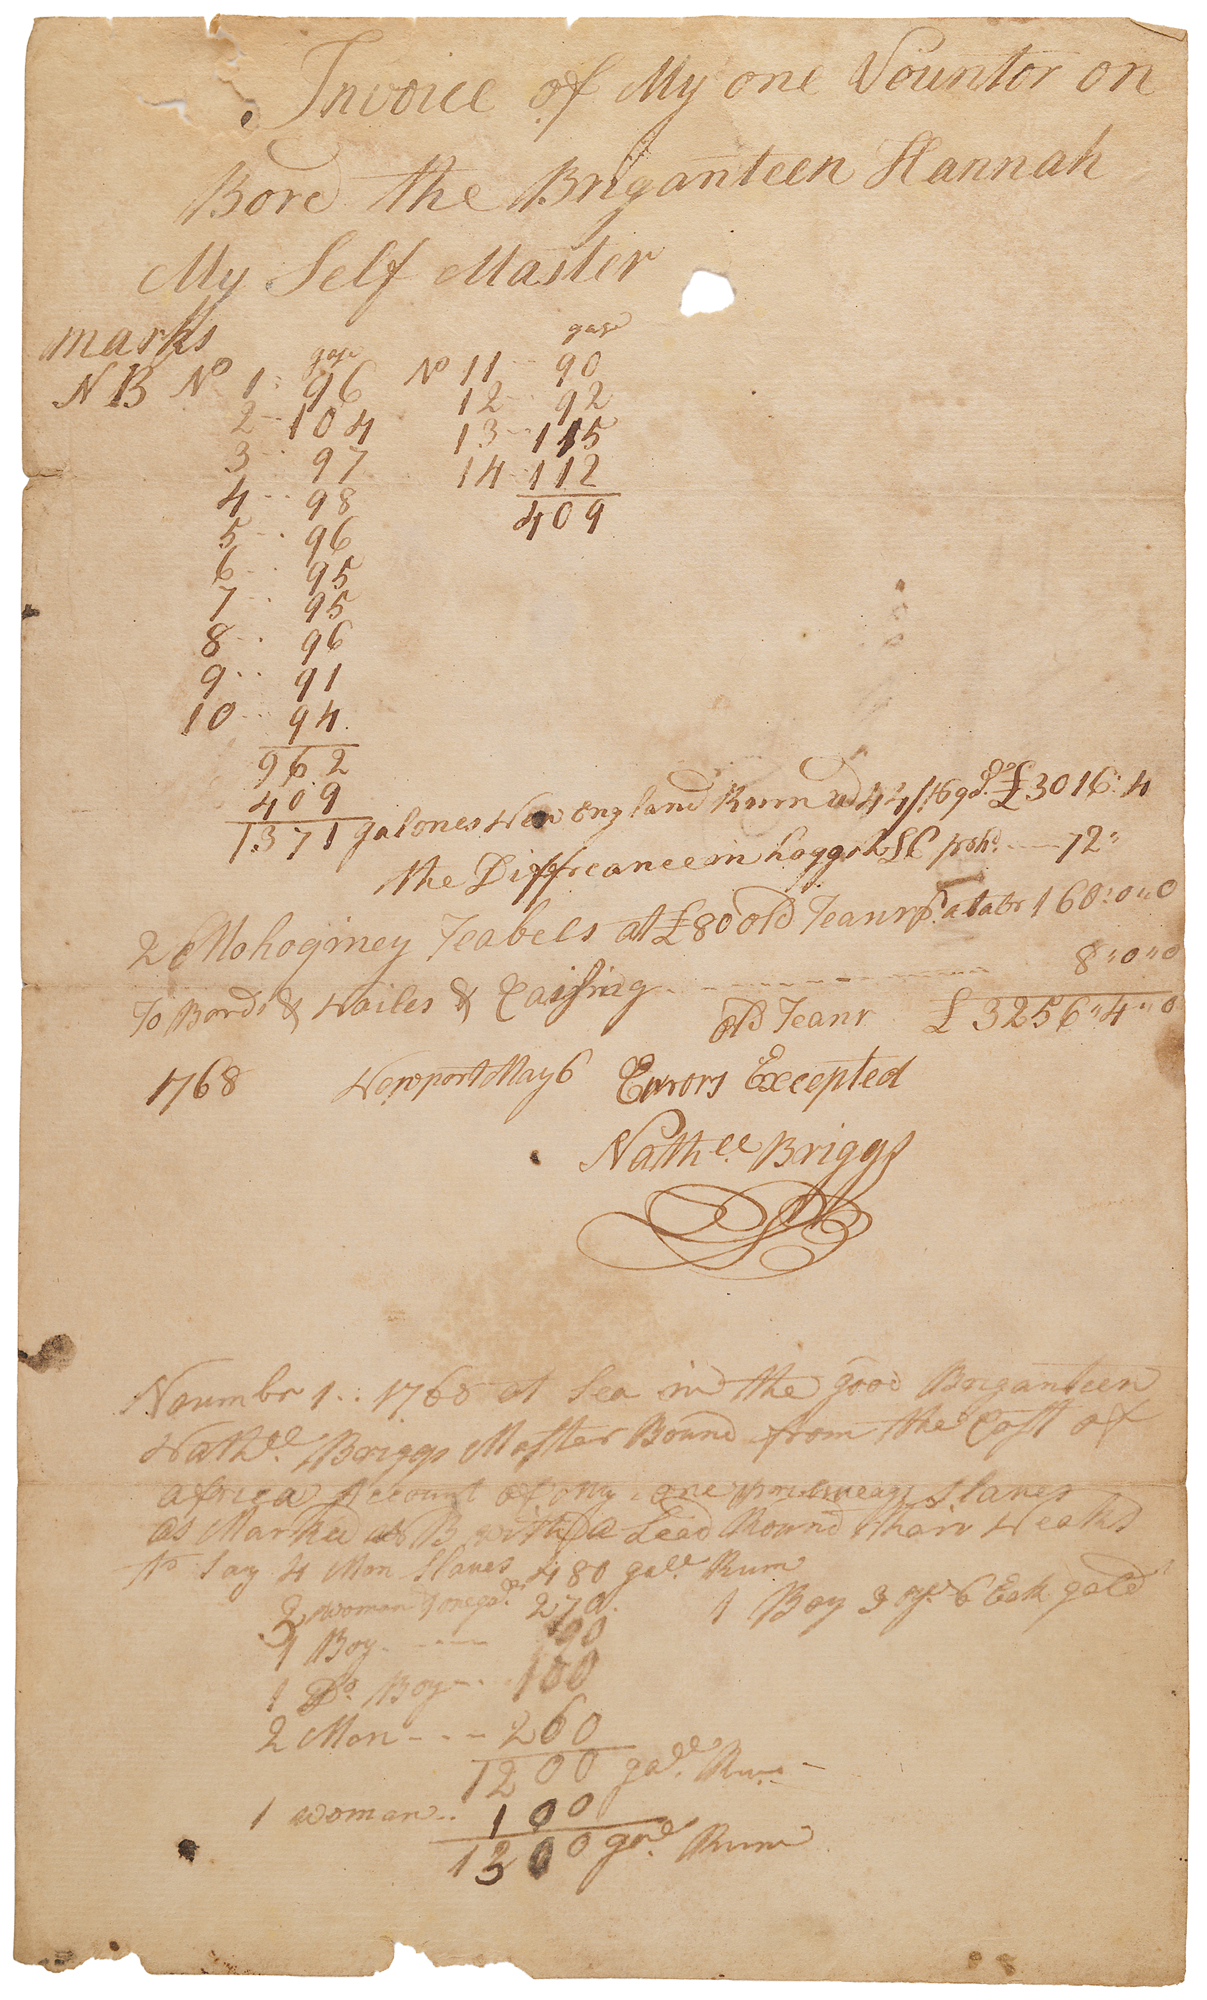 Invoice of My one Vountor on
Bord the Briganteen Hannah
My Self Master
marks
gage
NB No 1 96
2 104
3 97
4 98
5 96
6 95
7 95
8 96
9 91
10 94
962
409
gage
No 11 90
12 92
13 115
14 112
409
1371 galones New England Rum ad 44/ £3016:4
the Diffreance in hoggsh 72"
2 Mohoginey Teabels at £80 old Teanr 160:0"0
To Bords & Nailes & Caising 8"0"0
old Teanr £3256"4"0
1768 Newport May 6 Errors Excepted
Nathll Briggs
NB
Noumbr 1 : 1768 at Sea in the good Briganteen
Nathll Briggs Master Bound from the Cost of
africa Account of my one Slaves
as Marked NB with a Lead Round thair Neaks
to Say 4 Men Slaves 480 galls Rum
3 woman 270
1 Boy 90
1 Do Boy 100
2 Men 260
1200 galls Rum
1 woman 100
1300 gals Rum
1 Boy 3 6 gold